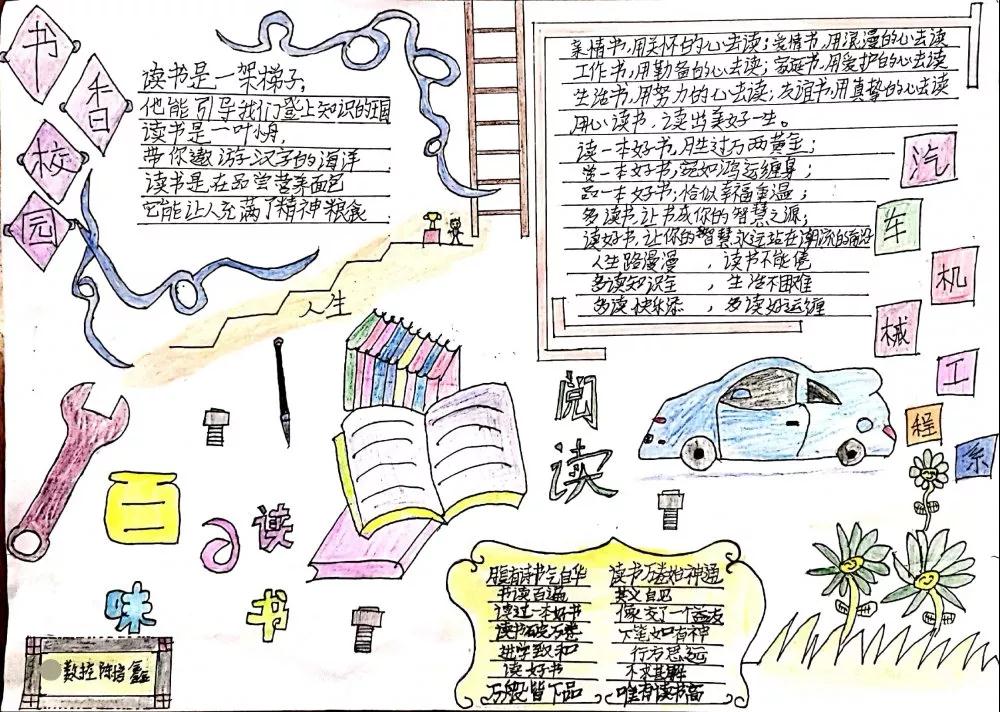 书香校园
读书是一架梯子,
他能引导我们登上知识的
读书是一叶舟,
带你遨游汉字的海洋
读书是在品尝营养面包
它能让人充满了精神粮食
人生
亲情书,用关怀的心去读;爱情书,用浪漫的心去读
工作书,用勤备的心去读;家庭书,用爱护的心去读
生活书,用努力的心去读;友谊书,用真挚的心去读
用心读书,读出美好一生。
读一本好书,胜过万两黄金;
赏一本好书;宛如鸿运缠身;
品一本好书;恰似幸福重温;
多读书,让书成你的智慧之源;
读好书,让你的智慧永远站在潮流的前沿
人生路漫漫 ,读书不能倦
多读知识全 ,生活不困难
多读快乐添 ,多读好运缠
汽车机械工程系
阅读
百味
读书
腹有诗书气自华 读书万卷始神通
书读百遍 其义自见
读过一本好书 像交了一个益友
读书破万卷 下笔如有神
进学致和 行方思远
读好书 不求甚解
万般皆下品 唯有读书高
数控 陈 鑫